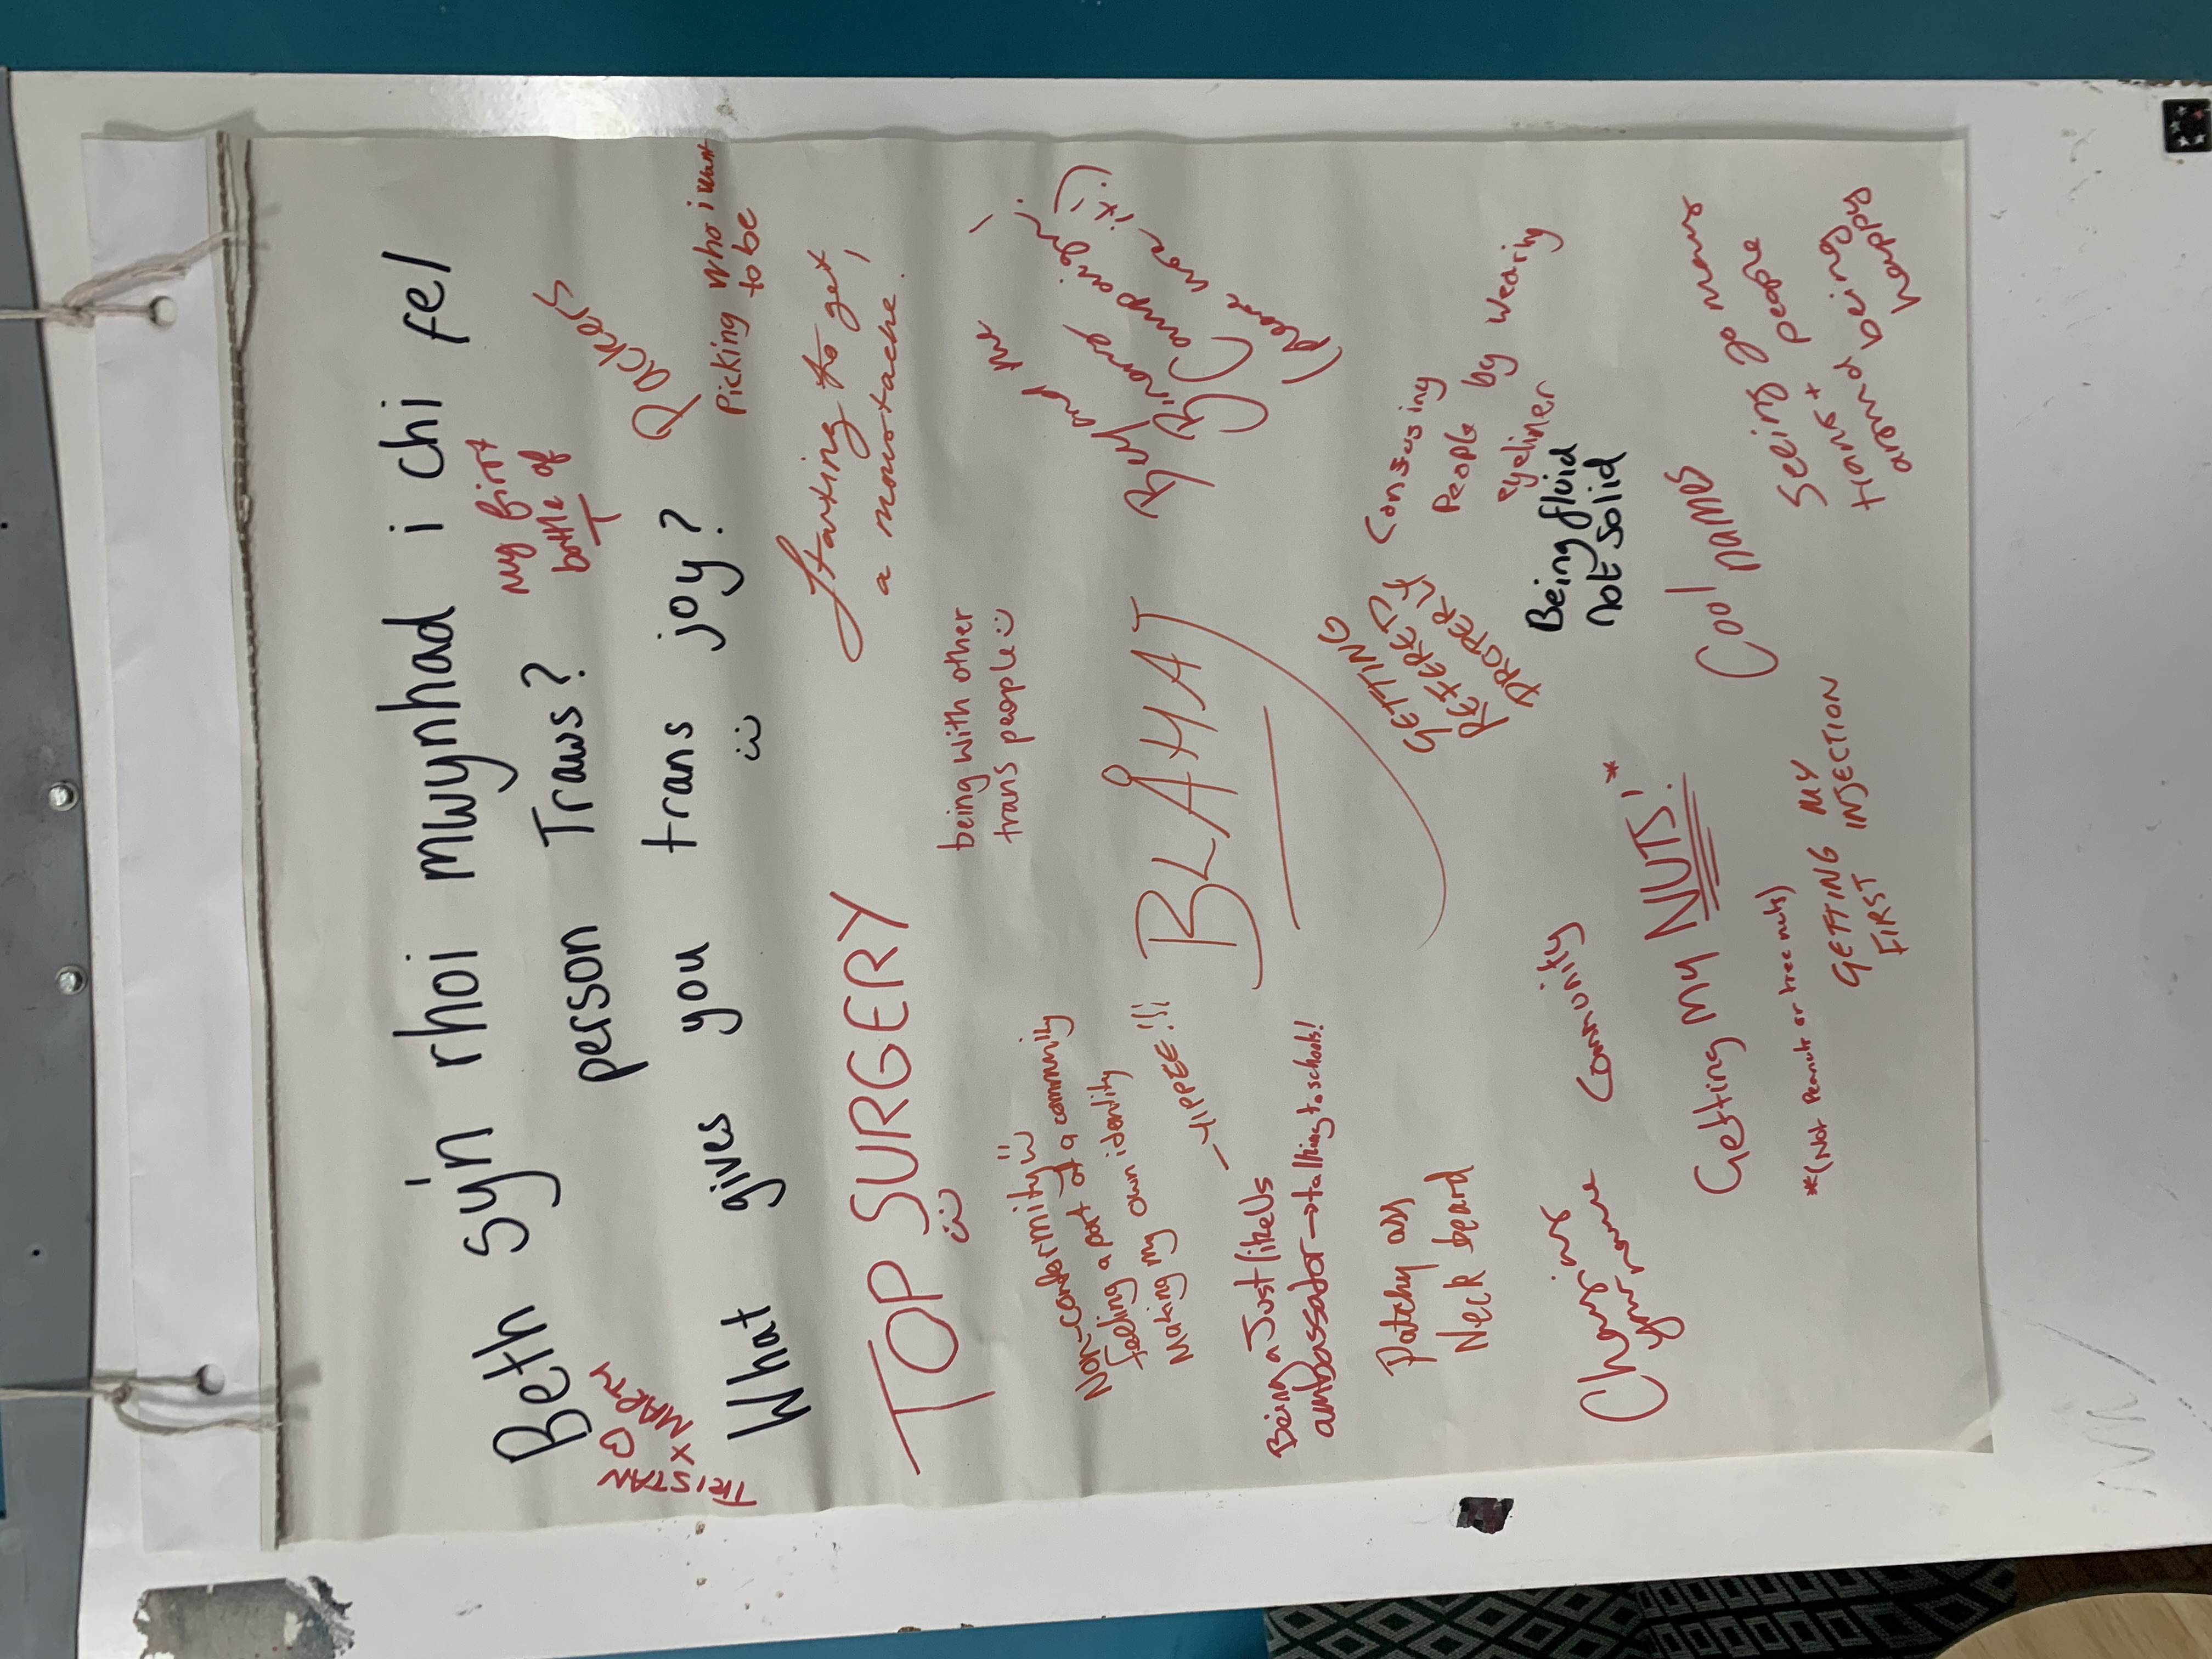 Beth sy'n rhoi mwynhad i chi fel
person Traws?
my first
bottle of
T
Packers
TRISTAN
X MARTY
What gives you trans joy?
Picking who i want
to be
TOP SURGERY
Starting to get
a moustache
being with other
trans people
Non-conformity
feeling a part of a community
Making my own identity
- YIPPEE!!!
BLÅHAJ
Buy
and
me
Binary
Campaign!
Being a Just like Us
ambassador → talking to schools!
Patchy ass
Neck beard
GETTING
REFERED
PROPERLY
Consusing
People by wearing
eyeliner
Being fluid
not solid
Changing
your name
Community
Getting my NUTS!*
*(Not Peanut or tree nuts)
Cool names
Seeing so many
trans+ people
around being
happy
GETTING MY
FIRST INJECTION